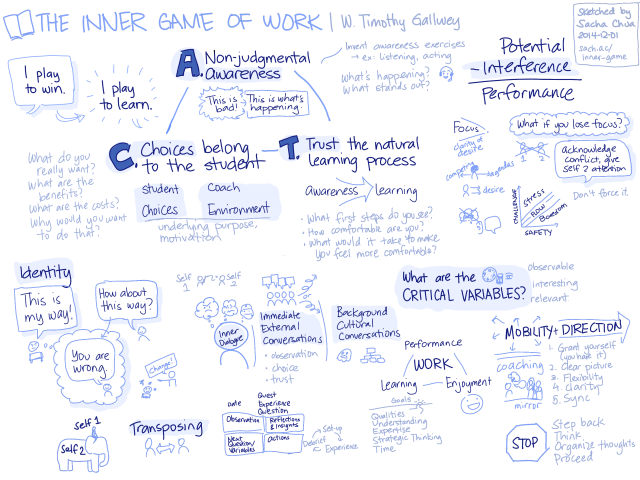 THE INNER GAME OF WORK | W. Timothy Gallwey
Sketched by
Sacha Chua
2014-12-01
sach.ac/
inner-game
I play
to win.
I play
to learn.
A. Non-judgmental
awareness
This is
bad!
This is what's
happening.
Invent awareness exercises
→ ex: listening, acting
What's happening?
What stands out?
Potential
- Interference
Performance
C. Choices belong
to the student
student
Choices
Coach
Environment
underlying purpose,
motivation
What do you
really want?
What are the
benefits?
What are the costs?
Why would you want
to do that?
T. Trust the natural
learning process
awareness
learning
• What first steps do you see?
• How comfortable are you?
• What would it take to make
you feel more comfortable?
FOCUS
clarity of
desire
competing
agendas
desire
What if you lose focus?
1 2
1 2
Acknowledge
conflict, give
Self 2 attention
Don't force it.
CHALLENGE
STRESS
FLOW
BOREDOM
SAFETY
Identity
This is
my way!
How about
this way?
You are
wrong.
Change!
Self
1
Self
2
Inner
Dialogue
Immediate
External
Conversations
• observation
• choice
• trust
Background
Cultural
Conversations
What are the
CRITICAL VARIABLES?
Observable
interesting
relevant
Performance
WORK
Learning
Enjoyment
Goals
Qualities
Understanding
Expertise
Strategic Thinking
Time
MOBILITY+DIRECTION
coaching
mirror
1. Grant yourself
(you have it)
2. Clear picture
3. Flexibility
4. Clarity
5. Sync
self 1
self 2
Transposing
Date
Quest
Experience
Question
Observation
Reflections
& Insights
Next
Question/
Variables
Actions
Set-up
Debrief
Experience
STOP
Step back
Think
Organize thoughts
Proceed